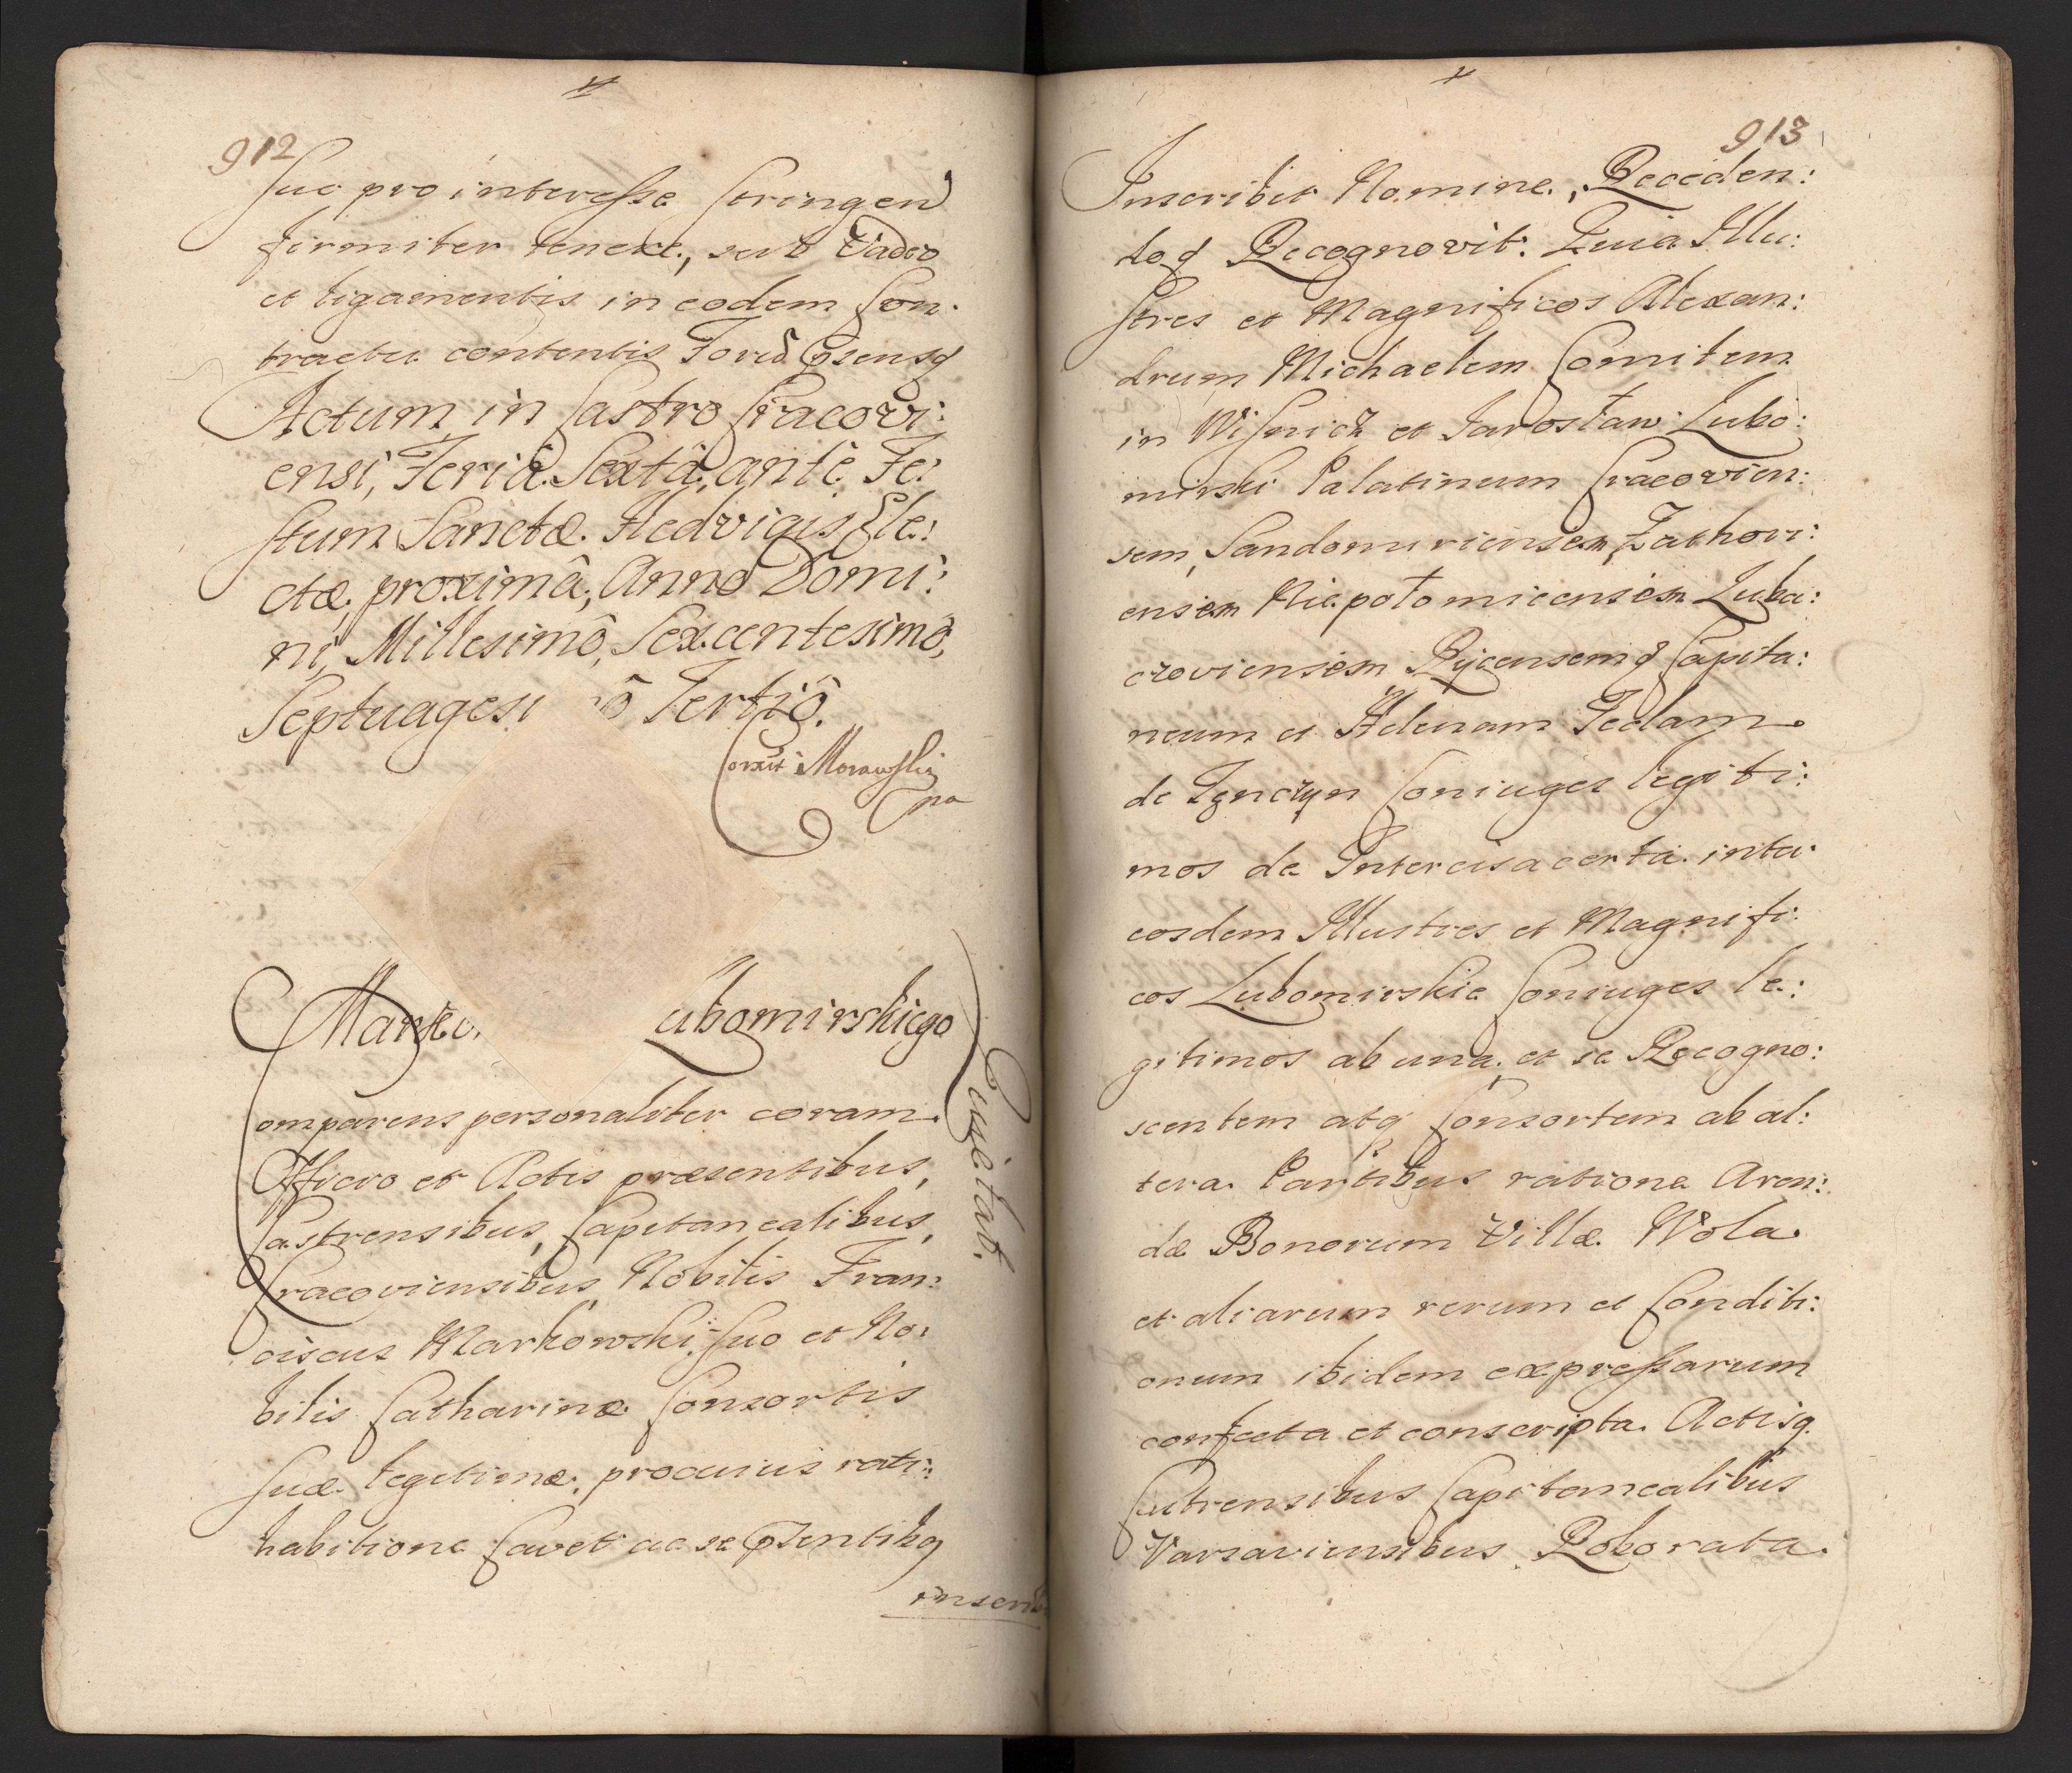 912
suo pro interesse stringen
firmiter tenere, sub Vadio
et ligamentis in eodem Con:
tractu contentis Forũ
Actum in Castro Cracovi:
ensi, Feriâ Sextâ, ante Fe:
stum Sanctæ Hedvigis Ele:
ctæ, proximâ, Anno Domi:
ni, Millesimô, Sexcentesimô,
Septuagesi ô Tertiô.
Corexit Morawski
mp
ubomirskiego
Quietat.
Comparens personaliter coram
Officio et Actis præsentibus,
Castrensibus, Capitanealibus,
Cracoviensibus Nobilis Fran:
ciscus Markowski, suo et No:
bilis Catharinæ Consortis
suæ legitimæ, pro cuius rati:
habitione Cavet ac se psentibq
inscrib
913
Inscribit Nomine, Receden:
doq Recognovit: Quia Illu:
stres et Magnificos Alexan:
drum Michaelem Comitem
in Wisnicz et Jarosław Lubo:
mirski Palatinum Cracovien:
sem, Sandomiriensem, Zathori:
ensem Niepołomicensem Luba:
czoviensem Rycensemq Capita:
neum et Helenam Teclam
de Tenczyn Coniuges legiti:
mos de Intercisa certa inter
eosdem Illustres et Magnifi:
cos Lubomirskie Coniuges le:
gitimos ab una et se Recogno:
scentem atq Consortem ab al:
tera Partibus ratione Aren:
dæ Bonorum Villæ Wola
et aliarum rerum et Conditi:
onum ibidem expressarum
confecta et conscripta Actisq
Castrensibus Capitanealibus
Varsaviensibus Roborata